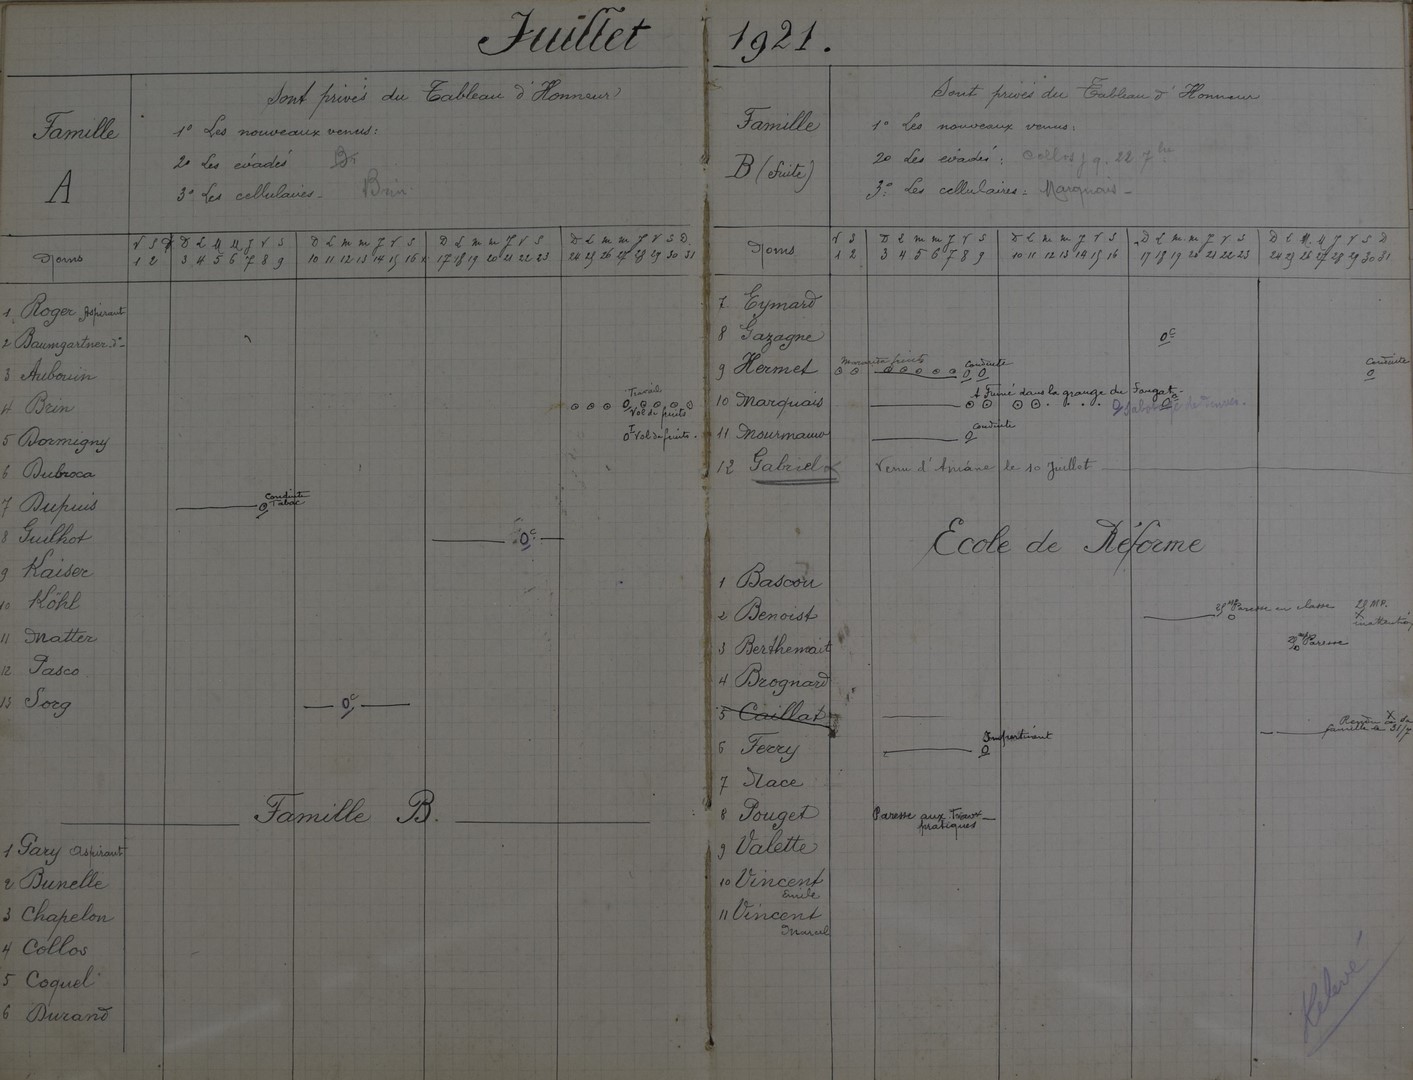 Juillet 1921.
Famille
A
Sont privés du Tableau d'Honneur
1° Les nouveaux venus:
2° Les évadés Br
3° Les cellulaires - Brin
Noms
V S D D L M M J V S D L M M J V S D L M M J V S D L M M J V S D.
1 2 3 4 5 6 7 8 9 10 11 12 13 14 15 16 17 18 19 20 21 22 23 24 25 26 27 28 29 30 31
1 Roger Aspirant
2 Baumgartner d°-
3 Aubouin
4 Brin Travail
Vol de fruits
5 Dormigny Vol de fruits.
6 Dubroca
7 Dupuis Conduite
Tabac
8 Guilhot 0c
9 Kaiser
10 Köhl
11 Matter
12 Pasco
13 Sorg 0c
Famille B.
1 Gary aspirant
2 Bunelle
3 Chapelon
4 Collos
5 Coquel
6 Durand
Famille
B (Suite)
Sont privés du Tableau d'Honneur
1° Les nouveaux venus:
2° Les évadés: Collos 22 7bre
3° Les cellulaires: Marquais -
Noms
V S D L M M J V S D L M M J V S D L M M J V S D L M M J V S D
1 2 3 4 5 6 7 8 9 10 11 12 13 14 15 16 17 18 19 20 21 22 23 24 25 26 27 28 29 30 31
7 Eymard
8 Gazagne 0c
9 Hermet fruits Conduite Conduite
10 Marquais A Fumé dans la grange du Fougat
11 Mourmano Conduite
12 Gabriel Venu d'Aniane le 10 Juillet
Ecole de Réforme
1 Bascou
2 Benoist Paresse en classe 20 M.P.
X
inattention
3 Berthemait Paresse
4 Brognard
5 Caillat X
famille le 31/7
6 Ferry Impertinent
7 Mace
8 Pouget Paresse aux Travx
pratiques
9 Valette
10 Vincent
Emile
11 Vincent
Marcel
Relevé